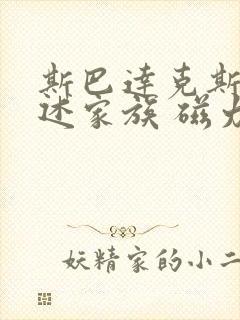 斯巴达克斯
述家族 磁力
妖精家的小二